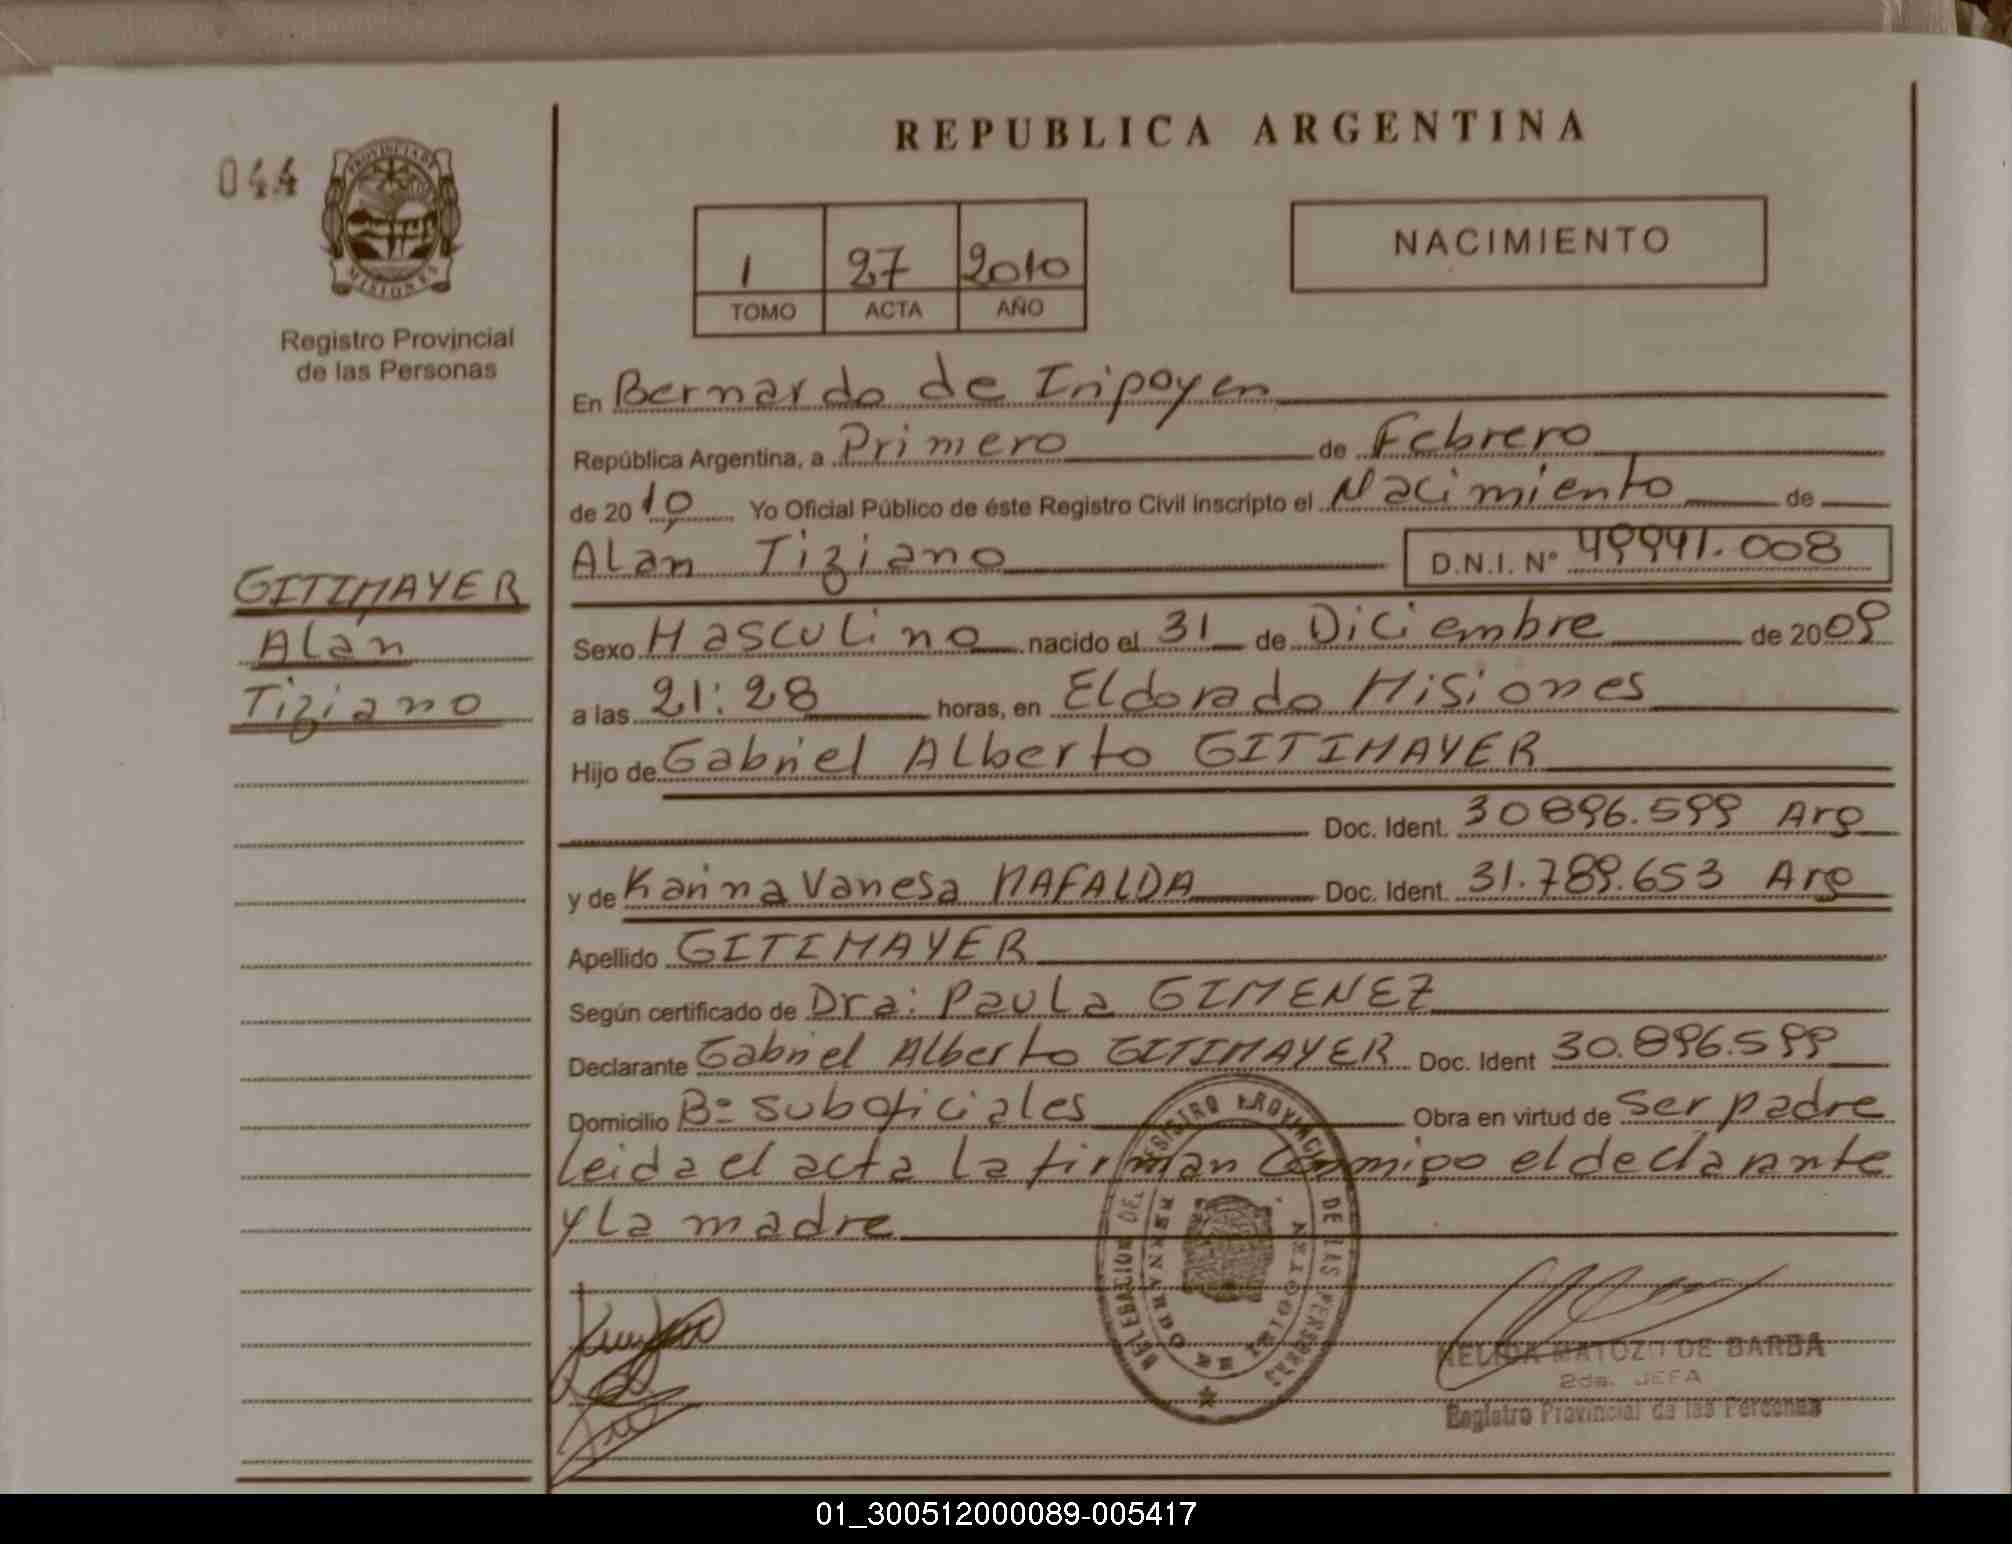 REPUBLICA ARGENTINA
044
PROVINCIA DE
MISIONES
Registro Provincial
de las Personas
1 27 2010
TOMO ACTA AÑO
NACIMIENTO
En Bernardo de Iripoyen
República Argentina, a Primero de Febrero
de 2010 Yo Oficial Público de éste Registro Civil inscripto el Nacimiento de
Alan Tiziano D.N.I. Nº 49941.008
GITIMAYER
Alan
Tiziano
Sexo Masculino nacido el 31 de Diciembre de 2009
a las 21:28 horas, en Eldorado Misiones
Hijo de Gabriel Alberto GITIMAYER
Doc. Ident. 30896.599 Arg
y de Karina Vanesa MAFALDA Doc. Ident. 31.789.653 Arg
Apellido GITIMAYER
Según certificado de Dra: Paula GIMENEZ
Declarante Gabriel Alberto GITIMAYER Doc. Ident 30.896.599
Domicilio Bº suboficiales Obra en virtud de Ser padre
leida el acta la firman conmigo el declarante
y la madre
DELEGACION DEL REGISTRO PROVINCIAL DE LAS PERSONAS
MISIONES
NELIDA MATOZO DE BARBA
2da. JEFA
Registro Provincial de las Personas
01_300512000089-005417